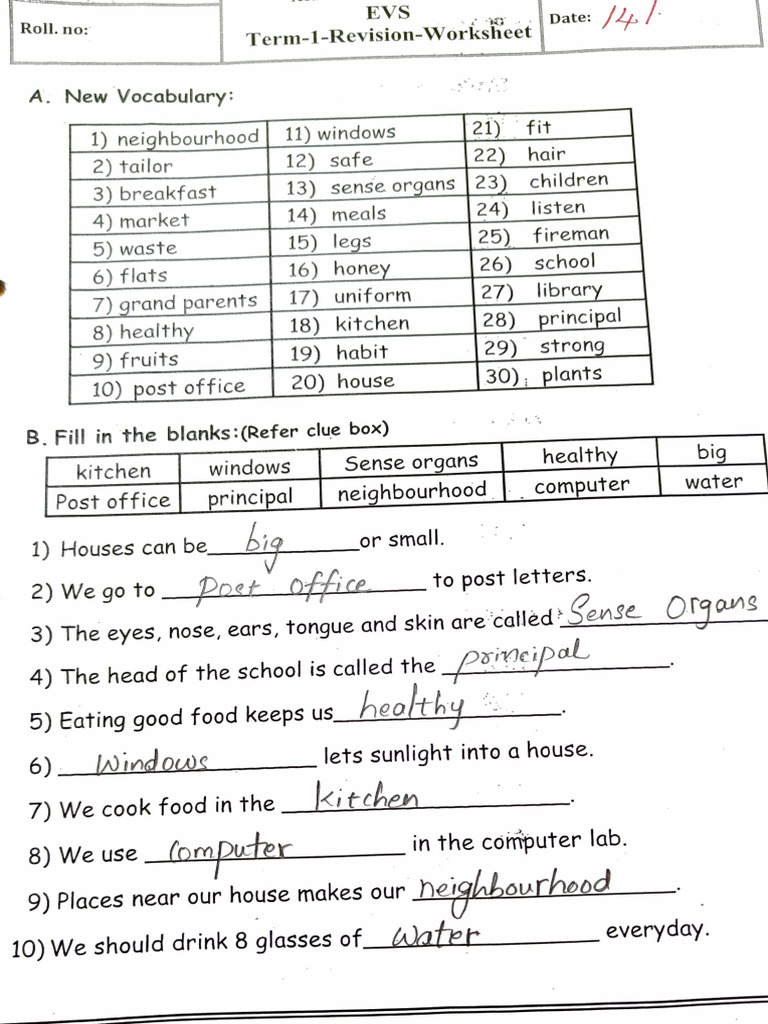 EVS
Roll. no:
Term-1-Revision-Worksheet
Date: 14/
A. New Vocabulary:
1) neighbourhood 11) windows 21) fit
2) tailor 12) safe 22) hair
3) breakfast 13) sense organs 23) children
4) market 14) meals 24) listen
5) waste 15) legs 25) fireman
6) flats 16) honey 26) school
7) grand parents 17) uniform 27) library
8) healthy 18) kitchen 28) principal
9) fruits 19) habit 29) strong
10) post office 20) house 30) plants
B. Fill in the blanks:(Refer clue box)
kitchen windows Sense organs healthy big
Post office principal neighbourhood computer water
1) Houses can be big or small.
2) We go to post office to post letters.
3) The eyes, nose, ears, tongue and skin are called Sense Organs
4) The head of the school is called the principal.
5) Eating good food keeps us healthy.
6) Windows lets sunlight into a house.
7) We cook food in the kitchen.
8) We use computer in the computer lab.
9) Places near our house makes our neighbourhood.
10) We should drink 8 glasses of water everyday.